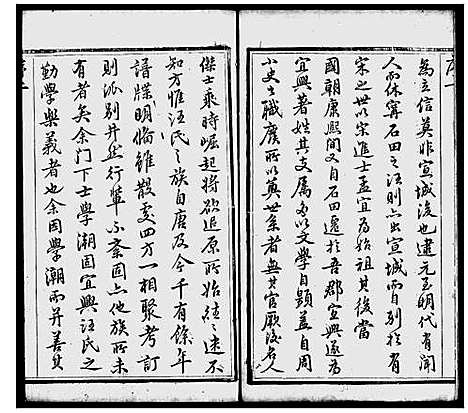 序一
為立信莫非宣城後也建元至明代有聞
人而休寧石田之汪則亦出宣城而自別於有
宋之世以宋進士孟宜為始祖其後當
國朝康熙間又自石田遷於吾郡宜興遂為
宜興著姓其支屬多以文學自顯蓋自周
小史之職廢所以奠世系者無其官厥後名人
傑士乘時崛起將欲追原所始往往迷不
知方惟汪氏之族自唐及今千有餘年
譜牒明備雖散處四方一相聚考訂
則派別井然行輩不紊固亦他族所未
有者矣余門下士學潮固宜興汪氏之
勤學樂義者也余因學潮而并善其